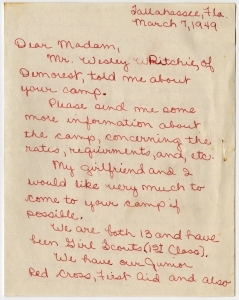 Tallahassee, Fla.
March 7, 1949
Dear Madam,
Mr. Wesley Ritchie, of
Demorest, told me about
your camp.
Please send me some
more information about
the camp, concerning the
rates, requirments, and, etc.
My girlfriend and I
would like very much to
come to your camp if
possible.
We are both 13 and have
been Girl Scouts (1st Class).
We have our Junior
Red Cross, First Aid and also